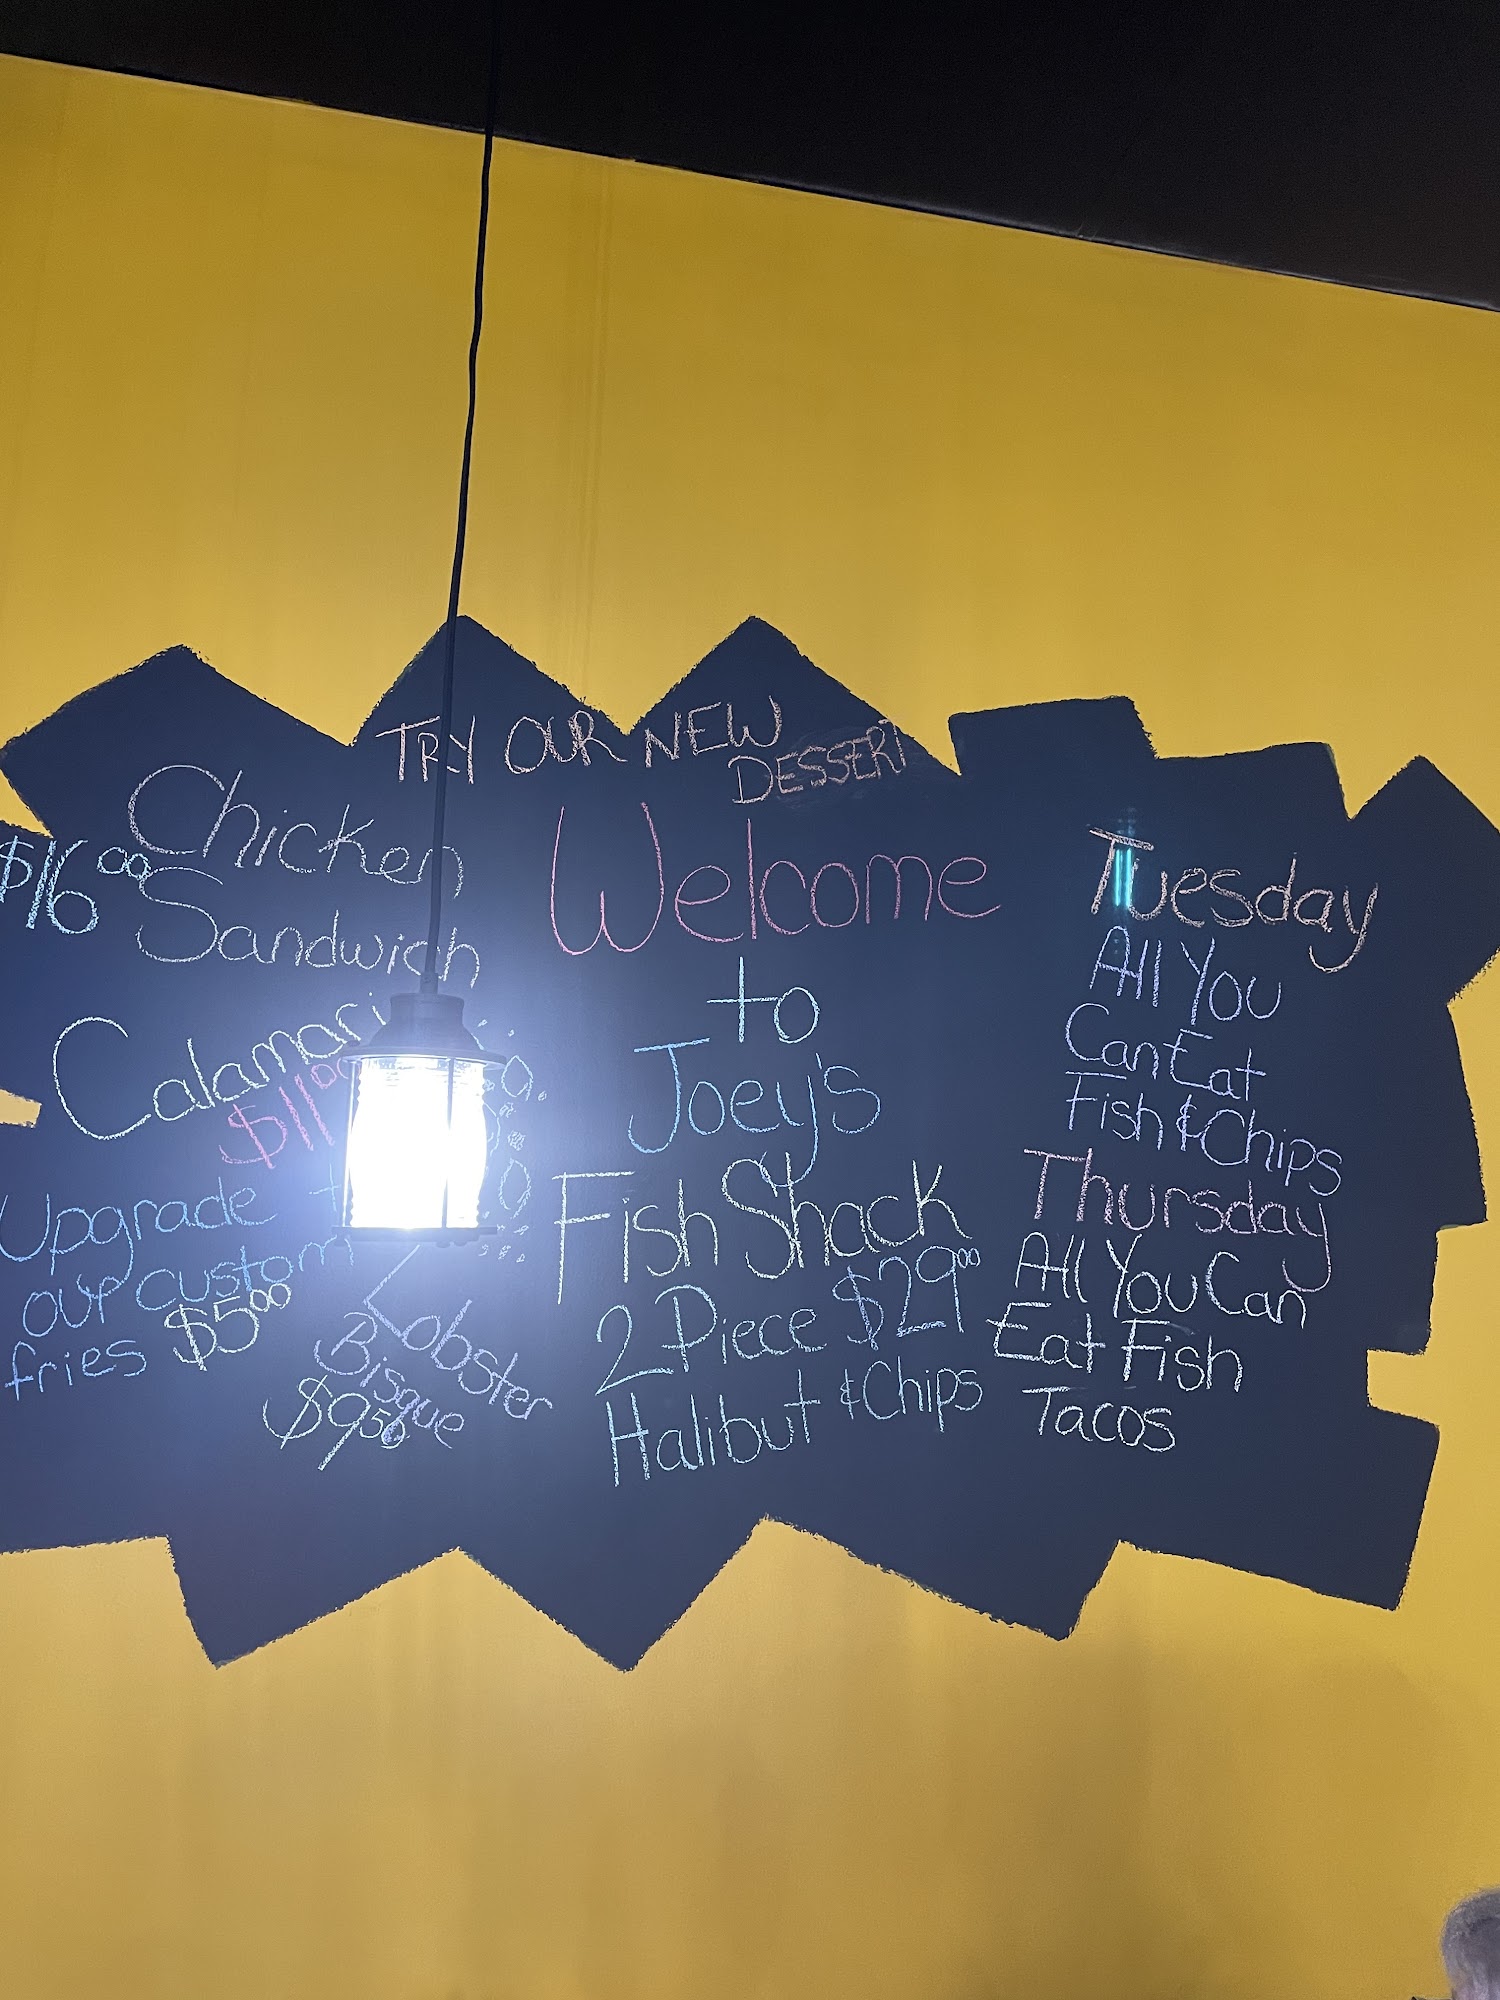 TRY OUR NEW
DESSERT
Chicken
$16.00
Sandwich
Calamari
$11.00
Upgrade
our custom
fries $5.00
Lobster
Bisque
$9.50
Welcome
to
Joey's
Fish Shack
2 Piece $29.00
Halibut & Chips
Tuesday
All You
Can Eat
Fish & Chips
Thursday
All You Can
Eat Fish
Tacos